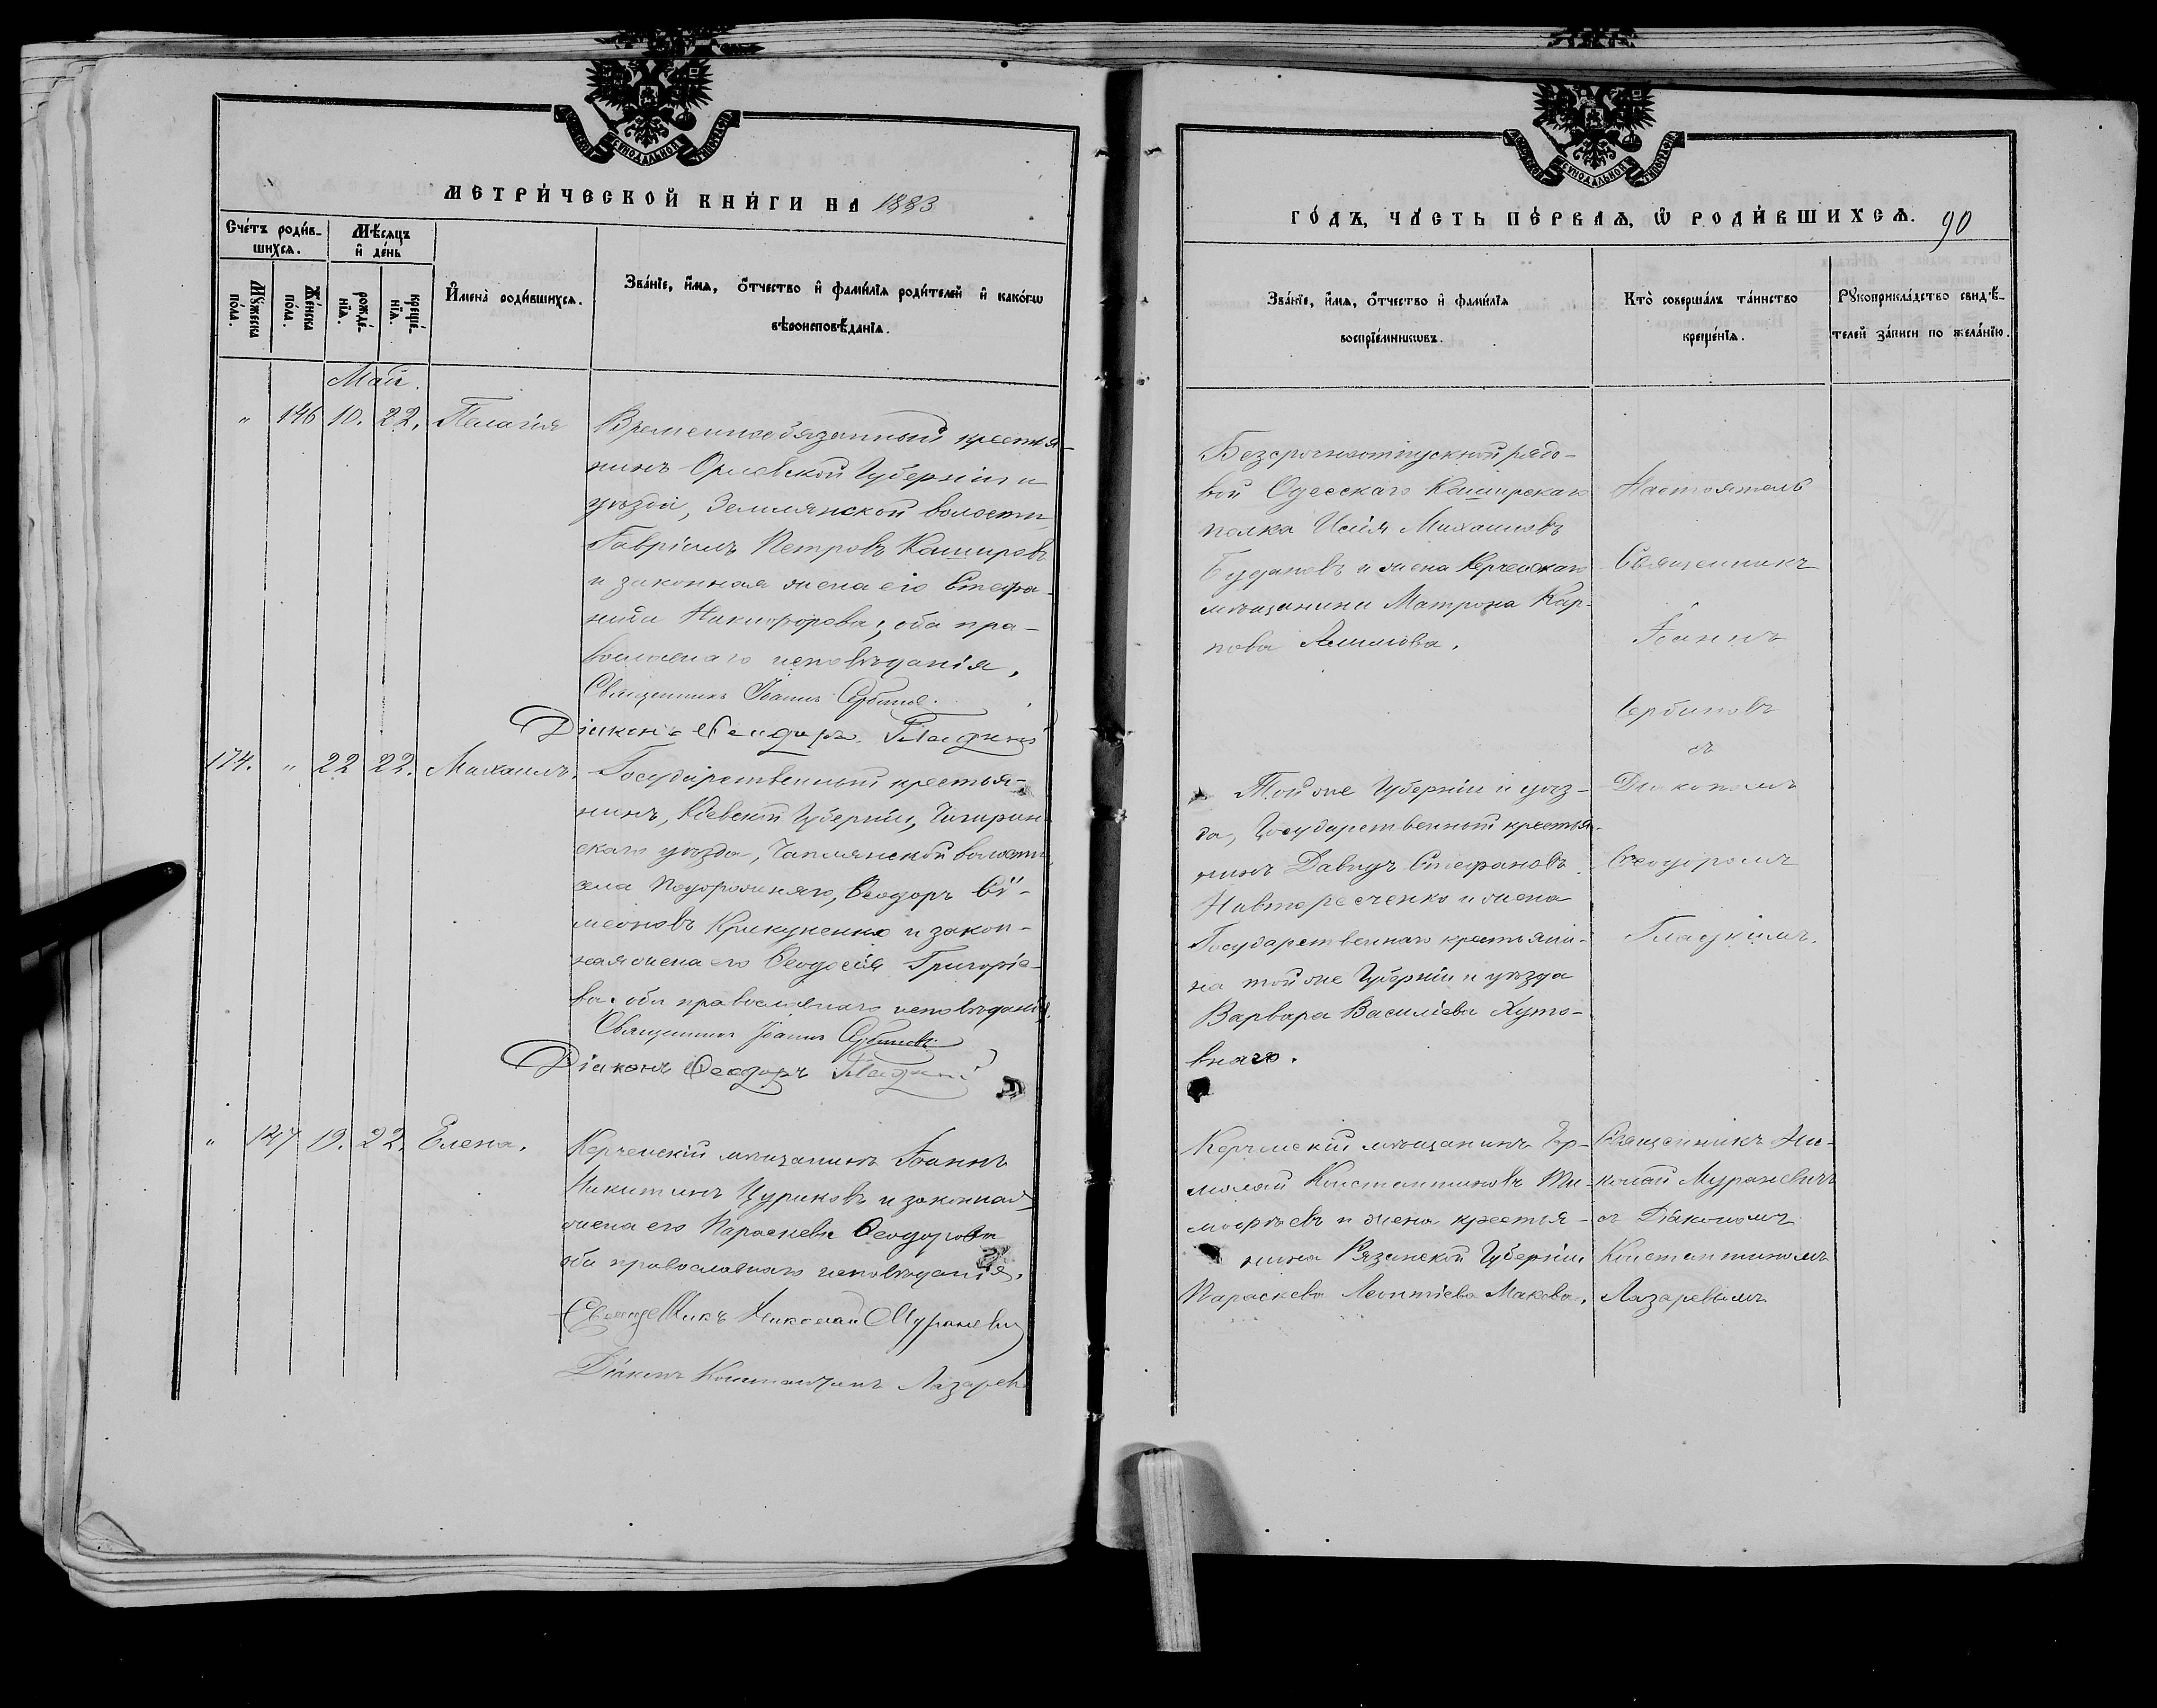 СУНОДАЛЬНОЙ
МЕТРИ́ЧЕСКОЙ КНИ́ГИ НА 1883
Сче́тъ роди́в-
шихся.
Мѣсяцъ
и҆ де́нь
Мꙋ́жеска
по́ла.
Же́нска
по́ла.
рожде́-
нїѧ.
креще́-
нїѧ.
И҆мена̀ роди́вшихсѧ.
Зва́нїе, и҆́мѧ, ѻ҆́тчество и҆ фами́лїѧ роди́телей и҆ како́гѡ
вѣроисповѣ́данїѧ.
Май.
" 146 10. 22. Пелагія
Временнообязанный крестья-
нинъ Орловской Губерніи и
уѣзда, волости
Гавріилъ Петровъ Кашировъ
и законная жена его Стефа-
нида Никифорова; оба пра-
вославнаго исповѣданія.
Священникъ Іоаннъ Сербиновъ.
Діаконъ Ѳеодоръ Гладкій
174. " 22 22. Михаилъ.
Государственный крестья-
нинъ, Кіевской Губерніи, Чигирин-
скаго уѣзда, волости
села Подорожняго, Ѳеодоръ Сѵ-
меоновъ Крикуненко и закон-
ная жена его Ѳеодосія Григоріе-
ва. оба православнаго исповѣданія.
Священникъ Іоаннъ Сербиновъ
Діаконъ Ѳеодоръ Гладкій
" 147 19. 22. Елена.
Керченскій мѣщанинъ Іоаннъ
Никитинъ Цуриковъ и законная
жена его Параскева Ѳеодорова
оба православнаго исповѣданія.
Священникъ Николай Мураневичъ
Діаконъ Константинъ Лазаревъ
СУНОДАЛЬНОЙ
ГО́ДЪ, ЧА́СТЬ ПЕ́РВАѦ, Ѡ РОДИ́ВШИХСѦ. 90
Зва́нїе, и҆́мѧ, ѻ҆́тчество и҆ фами́лїѧ
воспрїе́мникѡвъ.
Кто̀ соверша́лъ та́инство
креще́нїѧ.
Рꙋкоприкла́дство свидѣ́-
телей за́писи по жела́нїю.
Безсрочноотпускной рядо-
вой Одесскаго Каширскаго
полка Исаія Михаиловъ
Будановъ и жена Керченскаго
мѣщанина Матрона Кар-
пова
Настоятель
Священникъ
Іоаннъ
Сербиновъ
съ
Діакономъ
Ѳеодоромъ
Гладкимъ.
Той же Губерніи и уѣз-
да, Государственный крестья-
нинъ Давидъ Стефановъ
и жена
Государственнаго крестьяни-
на той же Губерніи и уѣзда
Варвара Василіева Хуто-
вная.
Керченскій мѣщанинъ Ер-
молай Константиновъ Ти-
моѳѣевъ и жена крестья-
нина Рязанской Губерніи
Параскева Леонтіева Макова.
Священникъ Ни-
колай Мураневичъ
съ Діакономъ
Константиномъ
Лазаревымъ